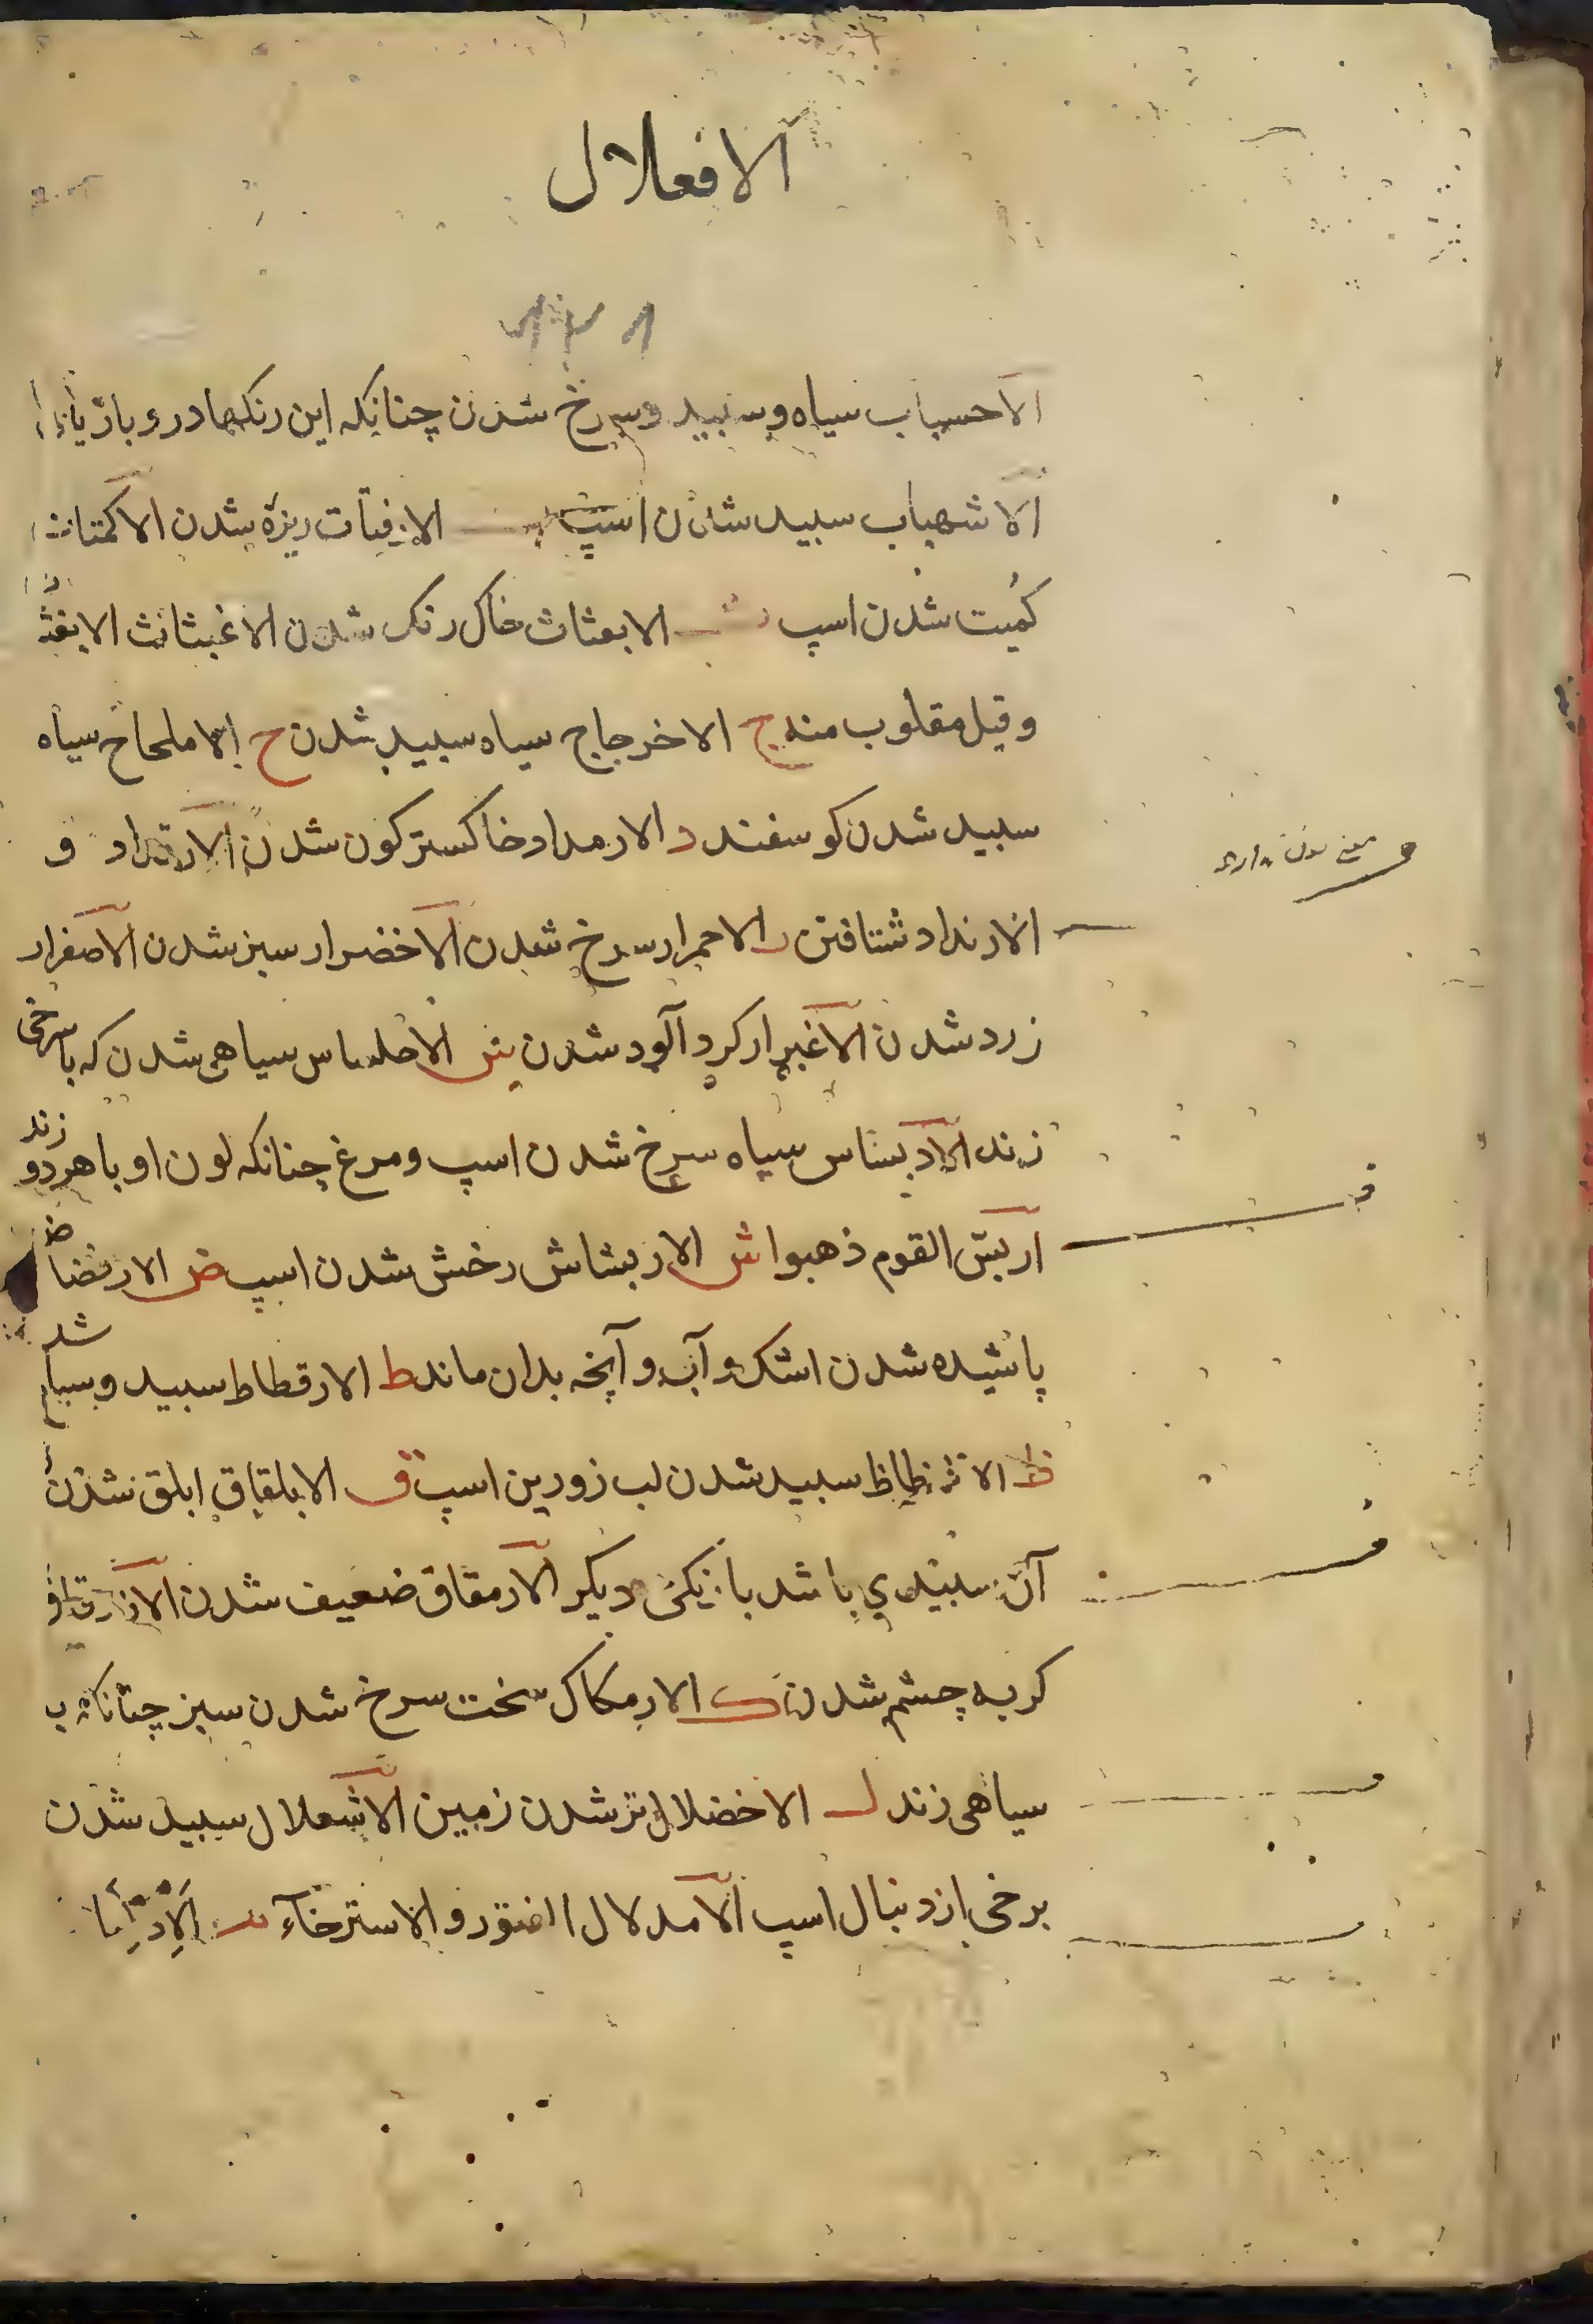 الافعلال
الاحسباب سیاه و سبید و سرخ شدن چنانکه این رنکها در و باز
الاشهباب سبید شدن اسپ الارفتات ریزه شدن الاکمتات
کمیت شدن اسپ ث الابغثاث خاک رنک شدن الاغبثاث الابغثاث
وقیل مقلوب منه ج الاخرجاج سیاه سبید شدن ح الاملحاح سیاه
سبید شدن کوسفند د الارمداد خاکستر کون شدن الارقداد و
الارمداد شتافتن ر الاحمرار سرخ شدن الاخضرار سبز شدن الاصفرار
زرد شدن الاغبرار کرد آلود شدن س الاحلساس سیاهی شدن که با سرخی
زند الادبساس سیاه سرخ شدن اسپ و مرغ چنانکه لون او با هر دو زند
اربس القوم ذهبوا ش الاربشاش رخش شدن اسپ ض الارفضاض
پاشیده شدن اشک و آب و آنچه بدان ماند ط الارقطاط سبید و سیاه شد
ظ سبید شدن لب زورین اسپ ق الابلقاق ابلق شدن
آن سبیدی باشد با رنکی دیکر الارمقاق ضعیف شدن الازرقاق
کربه چشم شدن ک الارمکاک سخت سرخ شدن سبز چنانکه ب
سیاهی زند ل الاخضلال تر شدن زمین الاشعلال سبید شدن
برخی از دنبال اسپ الامدلال الفتور و الاسترخاء م